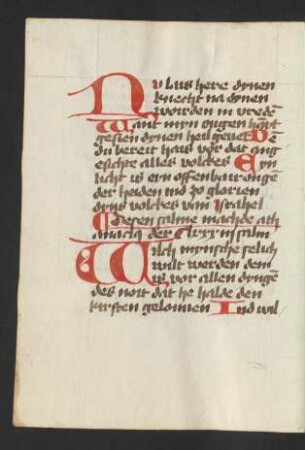 Nu lais here dynen
knecht na dynen
worden in vreden
Want myn ougen haint
gesien dynen heil geuer De
du bereit hais vor dat ange
sichte alles volckes Eyn
licht is ern offenbaironge
der heiden ind zo glorien
dyns volckes van israhel
Desen salme machde ath
anacius der CLxxx salm
Wilch mynsche selich
wilt werden dem
is vor allen dyngen
des noit dat he halde den
kirsten gelouuen Ind wil